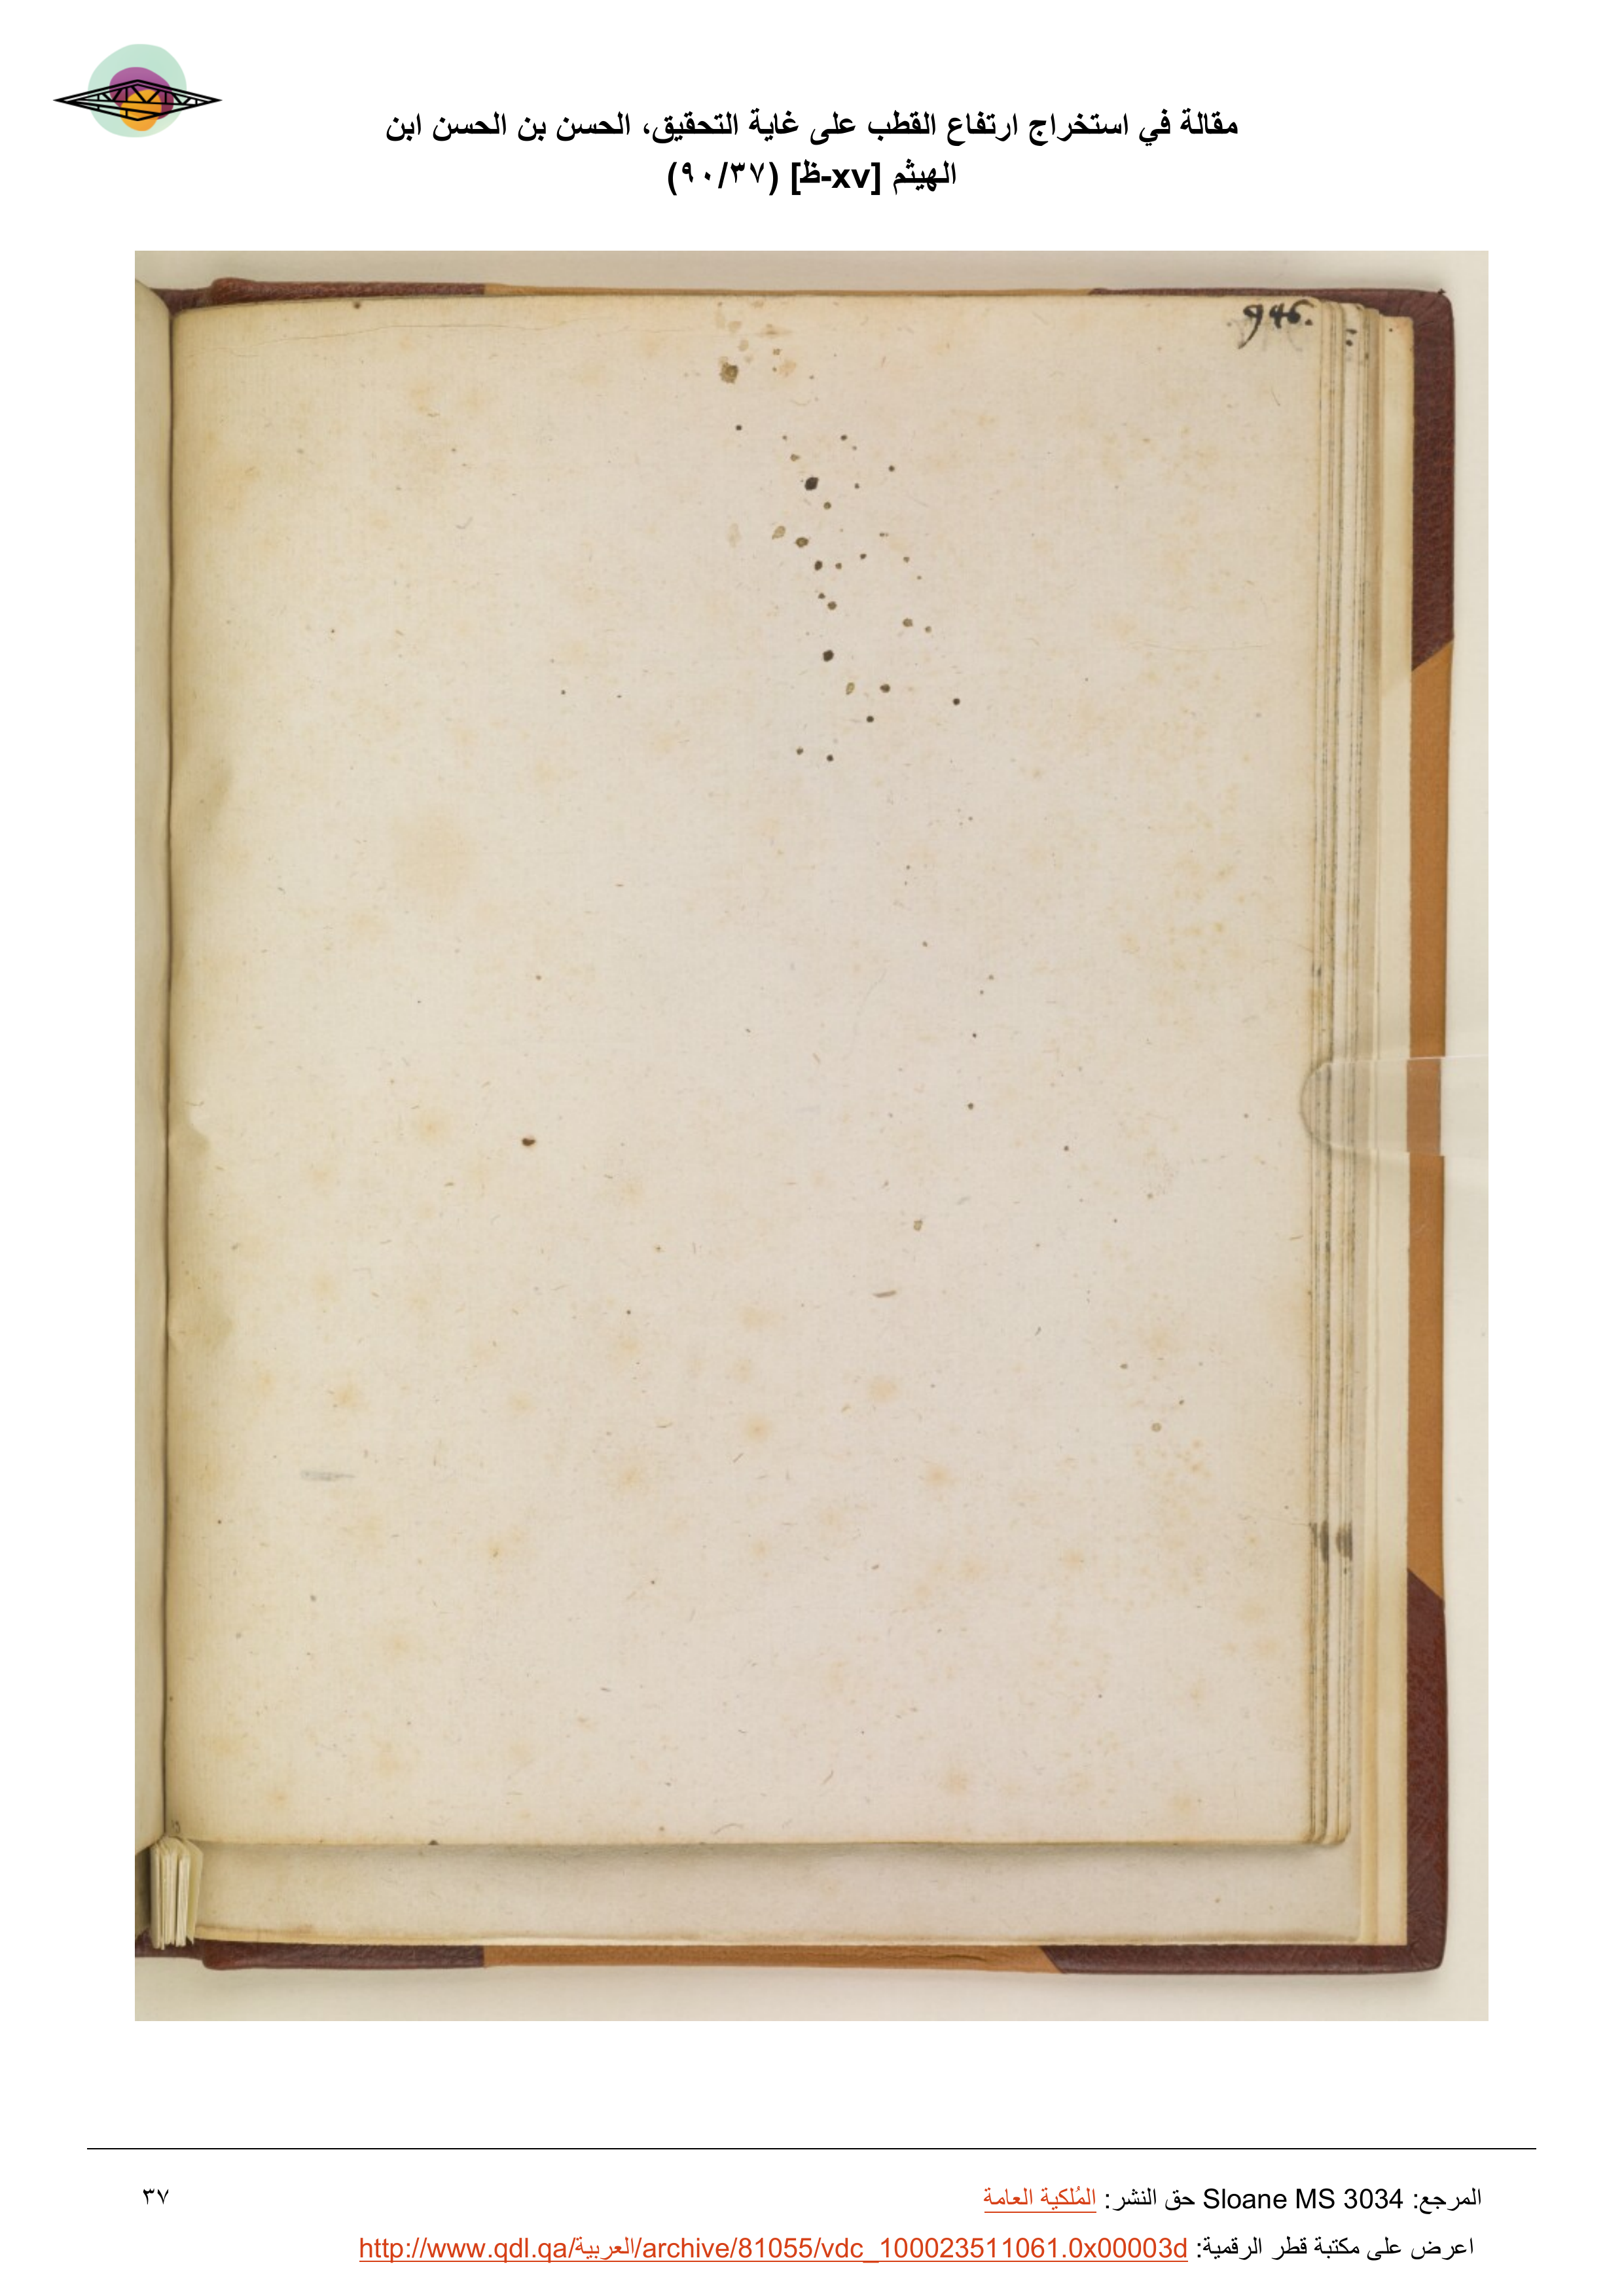 مقالة في استخراج ارتفاع القطب على غاية التحقيق، الحسن بن الحسن ابن
الهيثم [xv-ظ] (٩٠/٣٧)
946.
المرجع: Sloane MS 3034 حق النشر: المُلكية العامة
٣٧
اعرض على مكتبة قطر الرقمية: http://www.qdl.qa/العربية/archive/81055/vdc_100023511061.0x00003d